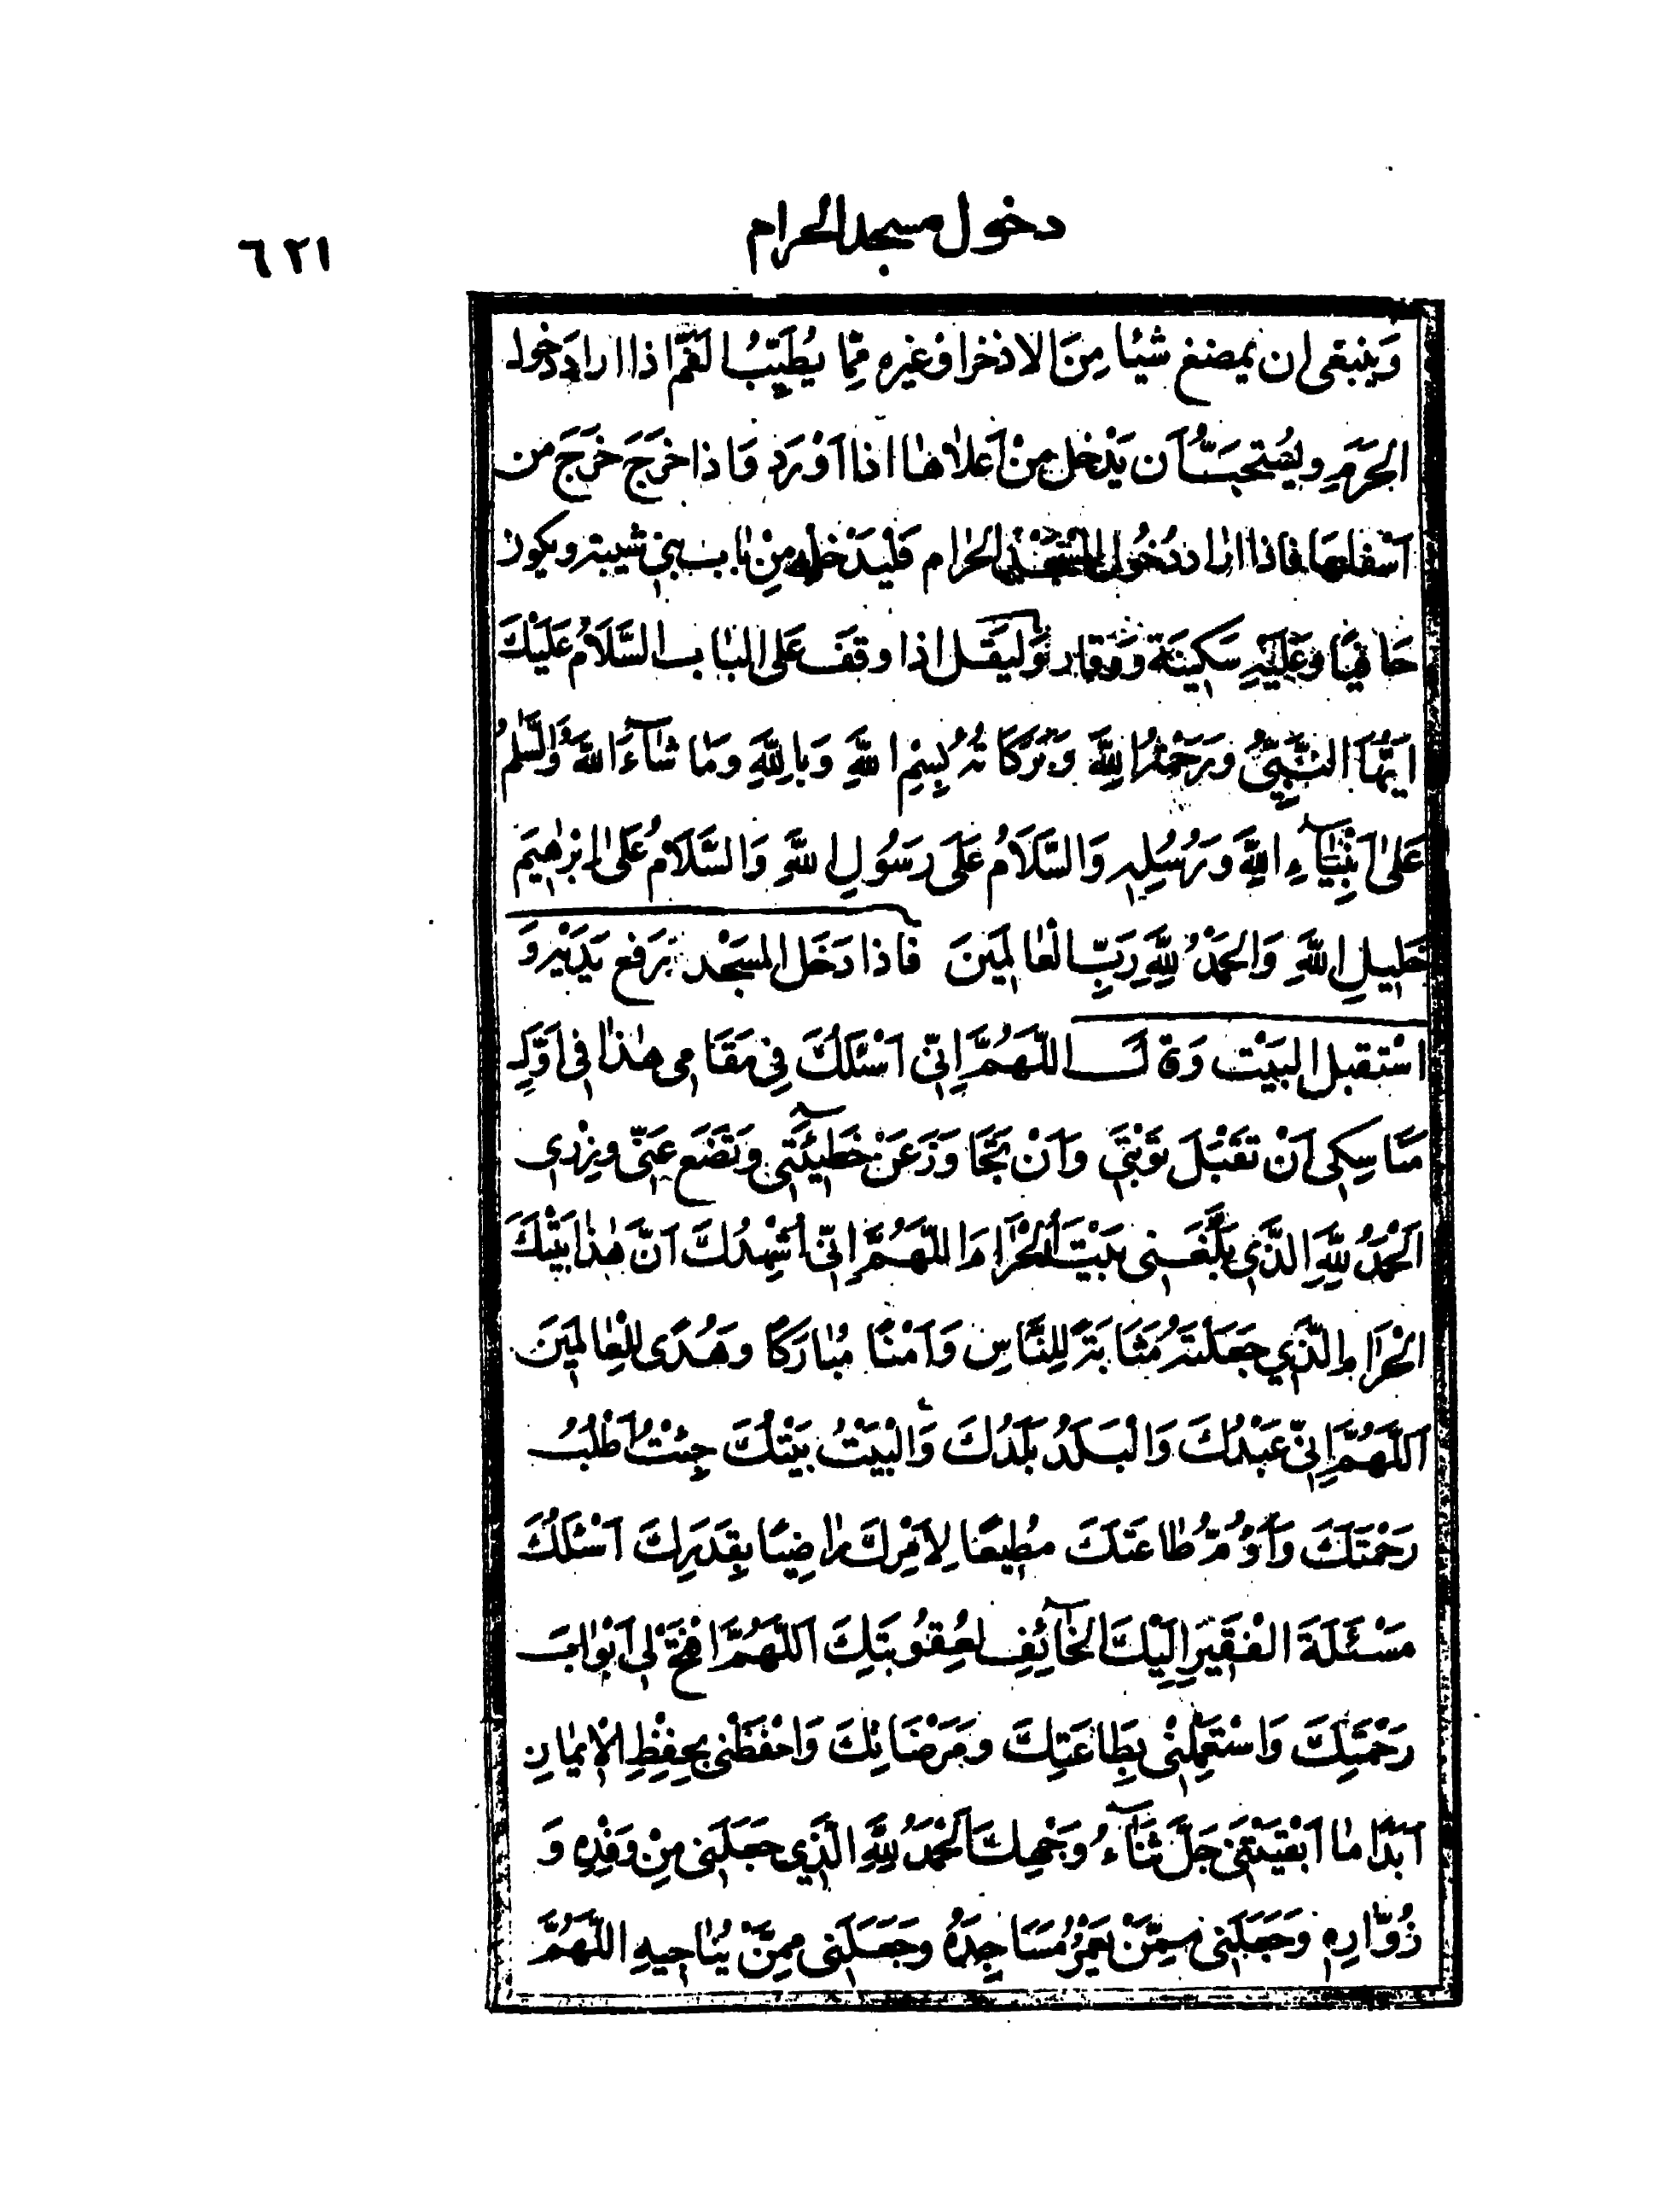 دخول مسجد الحرام
٦٢١
وَینبغی ان یمضغ شیئا مِنَ الاذخر او غیره مِمّا یُطَیِّبُ الفَمَّ اذا اراد دخول
الحَرَمِ ویُستحَبُّ اَن یَدْخل مِنْ اَعلاها اذا اَوْرَد وَاذا خَرَجَ خَرَجَ من
اَسْفلها فاذا اراد دُخُول المسْجد الحَرام فَلیَدْخله مِنْ باب بنی شیبة ویکون
حَافیًا وَعَلَیْهِ سَکینَة وَوقار وَلیَقل اذا وقفَ عَلی الباب السَّلامُ عَلَیْكَ
اَیُّهَا النَّبِیُّ وَرَحْمَةُ اللهِ وَبَرَکاتُهُ بِسْمِ اللهِ وَبِاللهِ وَمَا شاءَ اللهُ وَالسَّلمُ
عَلی اَنْبِیاءِ اللهِ وَرُسُلِهِ وَالسَّلامُ عَلَی رَسُولِ اللهِ وَالسَّلامُ عَلی اِبْرٰهِیمَ
خَلِیلِ اللهِ وَالحَمْدُ لِلّهِ رَبِّ العَالَمِینَ فَاذا دَخَل المَسجْد یَرفع یَدَیْهِ وَ
اسْتقبل البَیْت وَقالَ اللّهُمَّ اِنّی اَسْئَلُكَ فِی مَقَامِی هٰذا فِی اَوَّلِ
مَناسِکِی اَنْ تَقْبَلَ تَوْبَتِی وَاَنْ تَجَاوَزَ عَنْ خَطِیئَتِی وَتَضَعَ عَنّی وِزْرِی
اَلحَمْدُ لِلّهِ الَّذِی بَلَّغَنِی بَیْتَهُ الحَرامَ اللّهُمَّ اِنّی اُشْهِدُكَ اَنَّ هٰذا بَیْتُكَ
الحَرامُ الَّذِی جَعَلْتَهُ مَثَابَةً لِلنَّاسِ وَاَمْنًا مُبارَکًا وَهُدًی لِلْعالَمِینَ
اَللّهُمَّ اِنّی عَبْدُكَ وَالْبَلَدُ بَلَدُكَ وَالْبَیْتُ بَیْتُكَ جِئْتُ اَطْلُبُ
رَحْمَتَكَ وَاَؤُمُّ طاعَتَكَ مُطِیعًا لِاَمْرِكَ راضِیًا بِقَدَرِكَ اَسْئَلُكَ
مَسْئَلَةَ الفَقِیرِ اِلَیْكَ الخَائِفِ لِعُقُوبَتِكَ اَللّهُمَّ افْتَحْ لِی اَبْوابَ
رَحْمَتِكَ وَاسْتَعْمِلْنِی بِطاعَتِكَ وَمَرْضَاتِكَ وَاحْفَظْنِی بِحِفْظِ الْاِیمانِ
اَبَدًا ما اَبْقَیْتَنِی جَلَّ ثَناءُ وَجْهِكَ اَلحَمْدُ لِلّهِ الَّذِی جَعَلَنِی مِنْ وَفْدِهِ وَ
زُوّارِهِ وَجَعَلَنِی مِمَّنْ یَعْمُرُ مَسَاجِدَهُ وَجَعَلَنِی مِمَّنْ یُناجِیهِ اللّهُمَّ